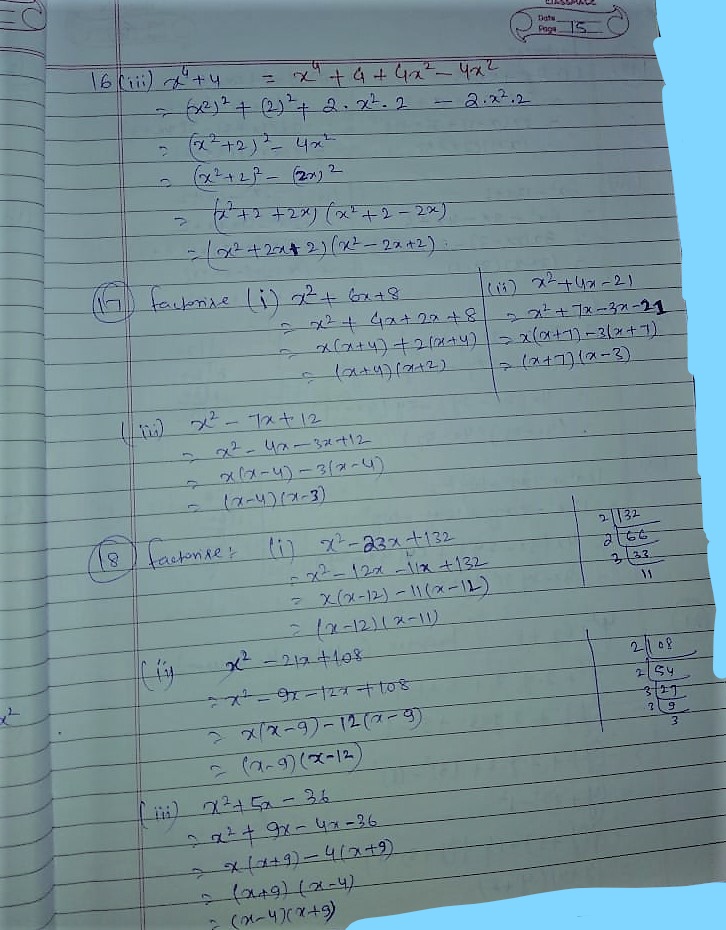 CLASSMATE
Date
Page 15
16 (iii) x⁴+4 = x⁴ + 4 + 4x² – 4x²
= (x2)² + (2)² + 2 · x² · 2 – 2·x²·2
= (x²+2)² – 4x²
= (x²+2)² – (2x)²
= (x²+2+2x) (x²+2–2x)
= (x²+2x+2)(x²–2x+2).
17 factorise (i) x² + 6x+8
= x² + 4x+2x+8
= x(x+4)+2(x+4)
= (x+4)(x+2)
(ii) x²+4x–21
= x²+7x–3x–21
= x(x+7)–3(x+7)
= (x+7)(x–3)
(iii) x² – 7x+12
= x²–4x–3x+12
= x(x–4)–3(x–4)
= (x–4)(x–3)
18 factorise: (i) x²–23x+132
= x²–12x–11x+132
= x(x–12)–11(x–12)
= (x–12)(x–11)
2 132
2 66
3 33
11
(ii) x² –21x+108
= x²–9x–12x+108
= x(x–9)–12(x–9)
= (x–9)(x–12)
2 108
2 54
3 27
3 9
3
(iii) x²+5x–36
= x²+9x–4x–36
= x(x+9)–4(x+9)
= (x+9)(x–4)
= (x–4)(x+9)
x²